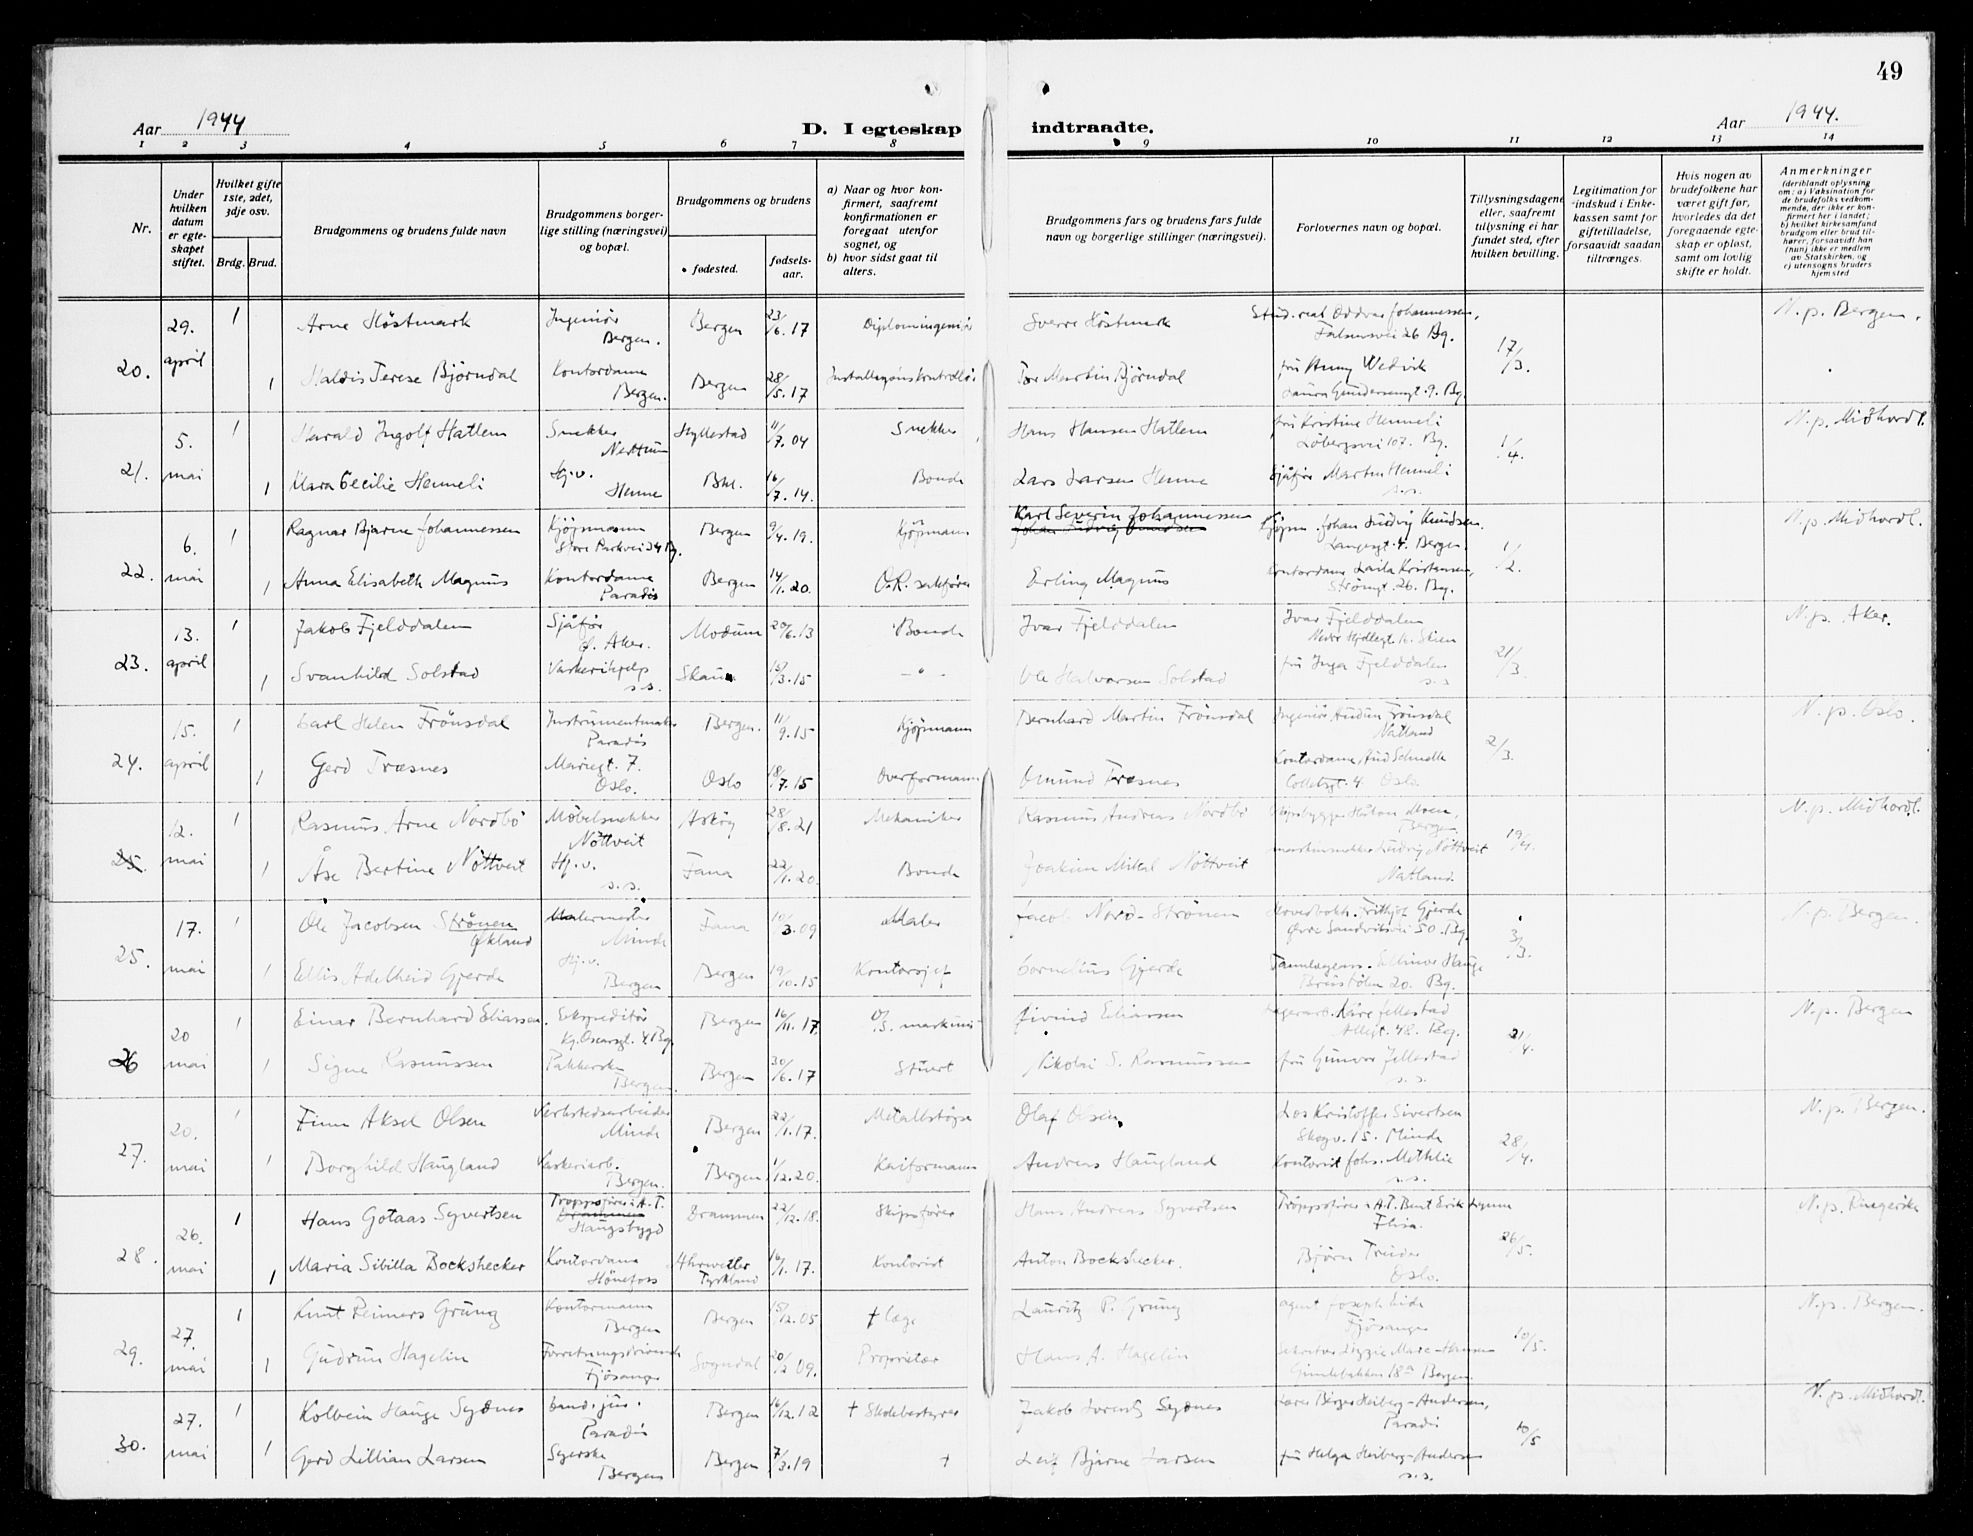 49
Aar 1944
D. I egteskap indtraadte.
Aar 1944.
1 2 3 4 5 6 7 8 9 10 11 12 13 14
Nr.
Under hvilken datum er egteskapet stiftet.
Hvilket gifte 1ste, 2det, 3dje osv.
Brdg. Brud.
Brudgommens og brudens fulde navn
Brudgommens borgerlige stilling (næringsvei) og bopæl.
Brudgommens og brudens
fødested.
fødselsaar.
a) Naar og hvor konfirmert, saafremt konfirmationen er foregaat utenfor sognet, og
b) hvor sidst gaat til alters.
Brudgommens fars og brudens fars fulde navn og borgerlige stillinger (næringsvei).
Forlovernes navn og bopæl.
Tillysningsdagene eller, saafremt tillysning ei har fundet sted, efter hvilken bevilling.
Legitimation for indskud i Enkekassen samt for giftetilladelse, forsaavidt saadan tiltrænges.
Hvis nogen av brudefolkene har været gift før, hvorledes da det foregaaende egteskap er opløst, samt om lovlig skifte er holdt.
Anmerkninger
(deriblandt oplysning om: a) Vaksination for de brudefolks vedkommende, der ikke er konfirmert her i landet; b) hvilket kirkesamfund brudgom eller brud tilhører, forsaavidt han (hun) ikke er medlem av Statskirken, og c) utensogns bruders hjemsted
20. 29. april 1 Arne Höstmark Ingeniör Bergen. Bergen 23/6.17 Diplomingeniör Sverre Höstmark Stud. real Oddvar Johannessen, Bg. 17/3. N.p. Bergen.
1 Haldis Terese Bjørndal Kontordame Bergen. Bergen 28/5.17 Installasjonskontrollör Tor Martin Bjørndal fru Anny Wedvik Laura Gundersensgt. 9. Bg.
21. 5. mai 1 Harald Ingolf Hatlem Snekker Nesttun Hyllestad 11/7.04 Snekker Hans Hansen Hatlem fru Kristine Henneli Löbergsvei 107. Bg. 1/4. N.p. Midhordl.
1 Mara Cecilie Henneli Hj.v. Henne Bkl. 16/7.14. Bonde Lars Larsen Henne Sjåför Martin Henneli s.s.
22. 6. mai 1 Ragnar Bjarne Johannessen Kjöpmann Store Parkvei 24 Bg. Bergen 9/4.19. Kjöpmann Karl Severin Johannessen Kjöpm. Johan Ludvig Knudsen. Langesgt. 4. Bergen. 1/2. N.p. Midhordl.
1 Anna Elisabeth Magnus Kontordame Paradis Bergen 14/1.20. O.R. sakförer Erling Magnus Kontordame Laila Kristensen, Strömgt. 26. Bg.
23. 13. april 1 Jakob Fjelddalen Sjåför Ö. Aker. Modum 20/6.13 Bonde Ivar Fjelddalen Ivar Fjelddalen Skien 21/3. N.p. Aker.
1 Svanhild Solstad Vaskerihjelp s.s. Skaun 10/3.15 - " - Ole Halvorsen Solstad fru Inga Fjelddalen s.s
24. 15. april 1 Carl Helen Frönsdal Instrumentmaker Paradis Bergen. 11/9.15 Kjöpmann Bernhard Martin Frönsdal Ingeniör Audun Frönsdal Natland 2/3. N.p. Oslo.
1 Gerd Træsnes Mariegt. 7. Oslo. Oslo 18/7.15 Overformann Omund Træsnes Kontordame Aud Schmelk Colletsgt. 4 Oslo.
25. 12. mai 1 Rasmus Arne Nordbö Möbelsnekker Nöttveit Asköy 28/8.21 Mekaniker Rasmus Andreas Nordbö Skipsbygger Håkon Moen, Bergen 19/4. N.p. Midhordl.
1 Åse Bertine Nöttveit Hj.v. s.s. Fana 22/1.20. Bonde Joakim Mikal Nöttveit Ludvig Nöttveit Natland.
25. 17. mai 1 Ole Jacobsen Strönen Økland Malermester Minde Fana 10/3.09 Maler Jacob Nord-Strönen Hovedbokh. Frithjof Gjerde Övre Sandviksvei 50. Bg. 3/3. N.p. Bergen.
1 Ellis Adelheid Gjerde Hj.v. Bergen Bergen 19/10.15 Kontorsjef Cornelius Gjerde Tannlegeass. Ellinor Hauge Breistölen 20. Bg.
26 20 mai 1 Einar Bernhard Eliassen. Ekspeditör Kg. Oscarsgt. 4 Bg. Bergen 16/11.17. Öivind Eliassen Lagerarb. Kåre Jellestad Allégt. 48. Bg. 21/4. N.p. Bergen
1 Signe Rasmussen Pakkerske Bergen. Bergen 30/6.17 Stuert Nikolai S. Rasmussen fru Gunvor Jellestad s.s.
27. 20. mai 1 Finn Aksel Olsen Verkstedsarbeider Minde Bergen 22/1.17. Metallstöper Olaf Olsen Los Kristoffer Sivertsen Skogv. 15. Minde 28/4. N.p. Bergen.
1 Borghild Haugland Vaskeriarb. Bergen. Bergen 1/12.20. Kaiformann Andreas Haugland Kontorist Johs. Methlie s.s.
28. 26. mai 1 Hans Gotaas Syvertsen Troppsförer i A.T. Drammen Haugsbygd Drammen 22/12.18. Skipsförer Hans Andreas Syvertsen Troppsförer i A.T. Bent Erik Lynne Flisa. 26/5. N.p. Ringerike
1 Maria Sibilla Bockshecker Kontordame Hönefoss Ahrweiler Tyskland 16/1.17. Kontorist Anton Bockshecker. Björn Oslo.
29. 27. mai 1 Knut Reimers Grung Kontormann Bergen Bergen 15/12.05 † læge Lauritz P. Grung agent Joseph Eide Fjösanger 10/5. N.p. Bergen.
1 Gudrun Hagelin Forretningsdrivende Fjösanger Sogndal 20/2 09. Proprietær Hans A. Hagelin sekretær Lizzie Marie Hansen Gimlebakken 18a Bergen.
30. 27. mai 1 Kolbein Hauge Sydnes cand. jur. Paradis Bergen 16/12.12 † Skolebestyrer Jakob Lorentz Sydnes Lærer Birger Heiberg-Andersen, Paradis 10/5 N.p. Midhordl.
1 Gerd Lillian Larsen Syerske Bergen Bergen 7/3.19 † Leif Bjarne Larsen fru Helga Heiberg-Andersen s.s.